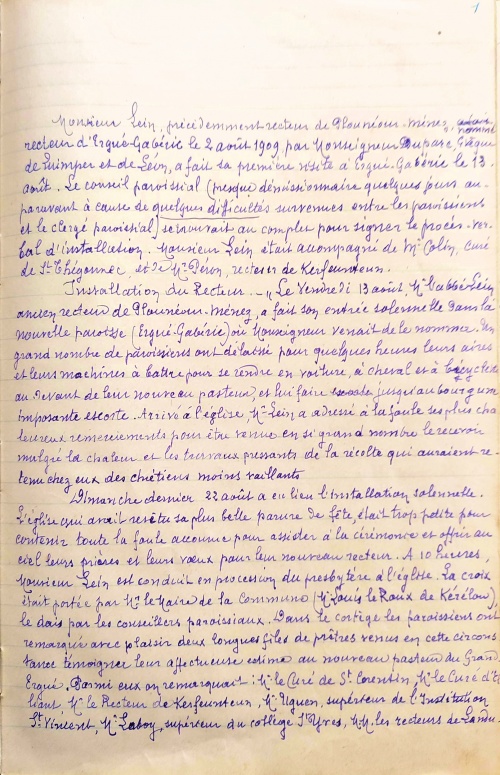 1
Monsieur Lein, précédemment recteur de Plounéour-Ménez, nommé
recteur d'Ergué-Gabéric le 2 août 1909, par Monseigneur Duparc Evêque
de Quimper et de Léon, a fait sa première visite à Ergué-Gabéric le 13
août. Le conseil paroissial (presque démissionnaire quelques jours au-
paravant à cause de quelques difficultés survenues entre les paroissiens
et le clergé paroissial) se trouvait au complet pour signer le procès-ver-
bal d'installation. Monsieur Lein était accompagné de Mr Colin, curé
de St Thégonnec, et de Mr Péron, recteur de Kerfeunteun.
Installation du Recteur. - "Le Vendredi 13 août Mr l'abbé Lein
ancien recteur de Plounéour-Ménez, a fait son entrée solennelle dans la
nouvelle paroisse (Ergué-Gabéric) où Monseigneur venait de le nommer. Un
grand nombre de paroissiens ont délaissé pour quelques heures leurs aires
et leurs machines à battre pour se rendre en voiture, à cheval et à bicyclette
au devant de leur nouveau pasteur, et lui faire jusqu'au bourg une
imposante escorte. Arrivé à l'église, Mr Lein a adressé à la foule ses plus cha
leureux remerciements pour être venue en si grand nombre le recevoir
malgré la chaleur et les travaux pressants de la récolte qui auraient re-
tenu chez eux des chrétiens moins vaillants
Dimanche dernier 22 août a eu lieu l'installation solennelle.
L'église qui avait revêtu sa plus belle parure de fête, était trop petite pour
contenir toute la foule accourue pour assister à la cérémonie et offrir au
ciel leurs prières et leurs vœux pour leur nouveau recteur. A 10 heures,
Monsieur Lein est conduit en procession du presbytère à l'église. La croix
était portée par Mr le Maire de la Commune (Mr Louis le Roux de Kérélou),
le dais par les conseillers paroissiaux. Dans le cortège les paroissiens ont
remarqué avec plaisir deux longues files de prêtres venus en cette circons
tance témoigner leur affectueuse estime au nouveau pasteur du Grand
Ergué. Parmi eux on remarquait: Mr le Curé de St Corentin, Mr le Curé d'El
liant, Mr le Recteur de Kerfeunteun, Mr Uguen, supérieur de l'Institution
St Vincent, Mr supérieur du collège St Yves, MM. les recteurs de Landu-